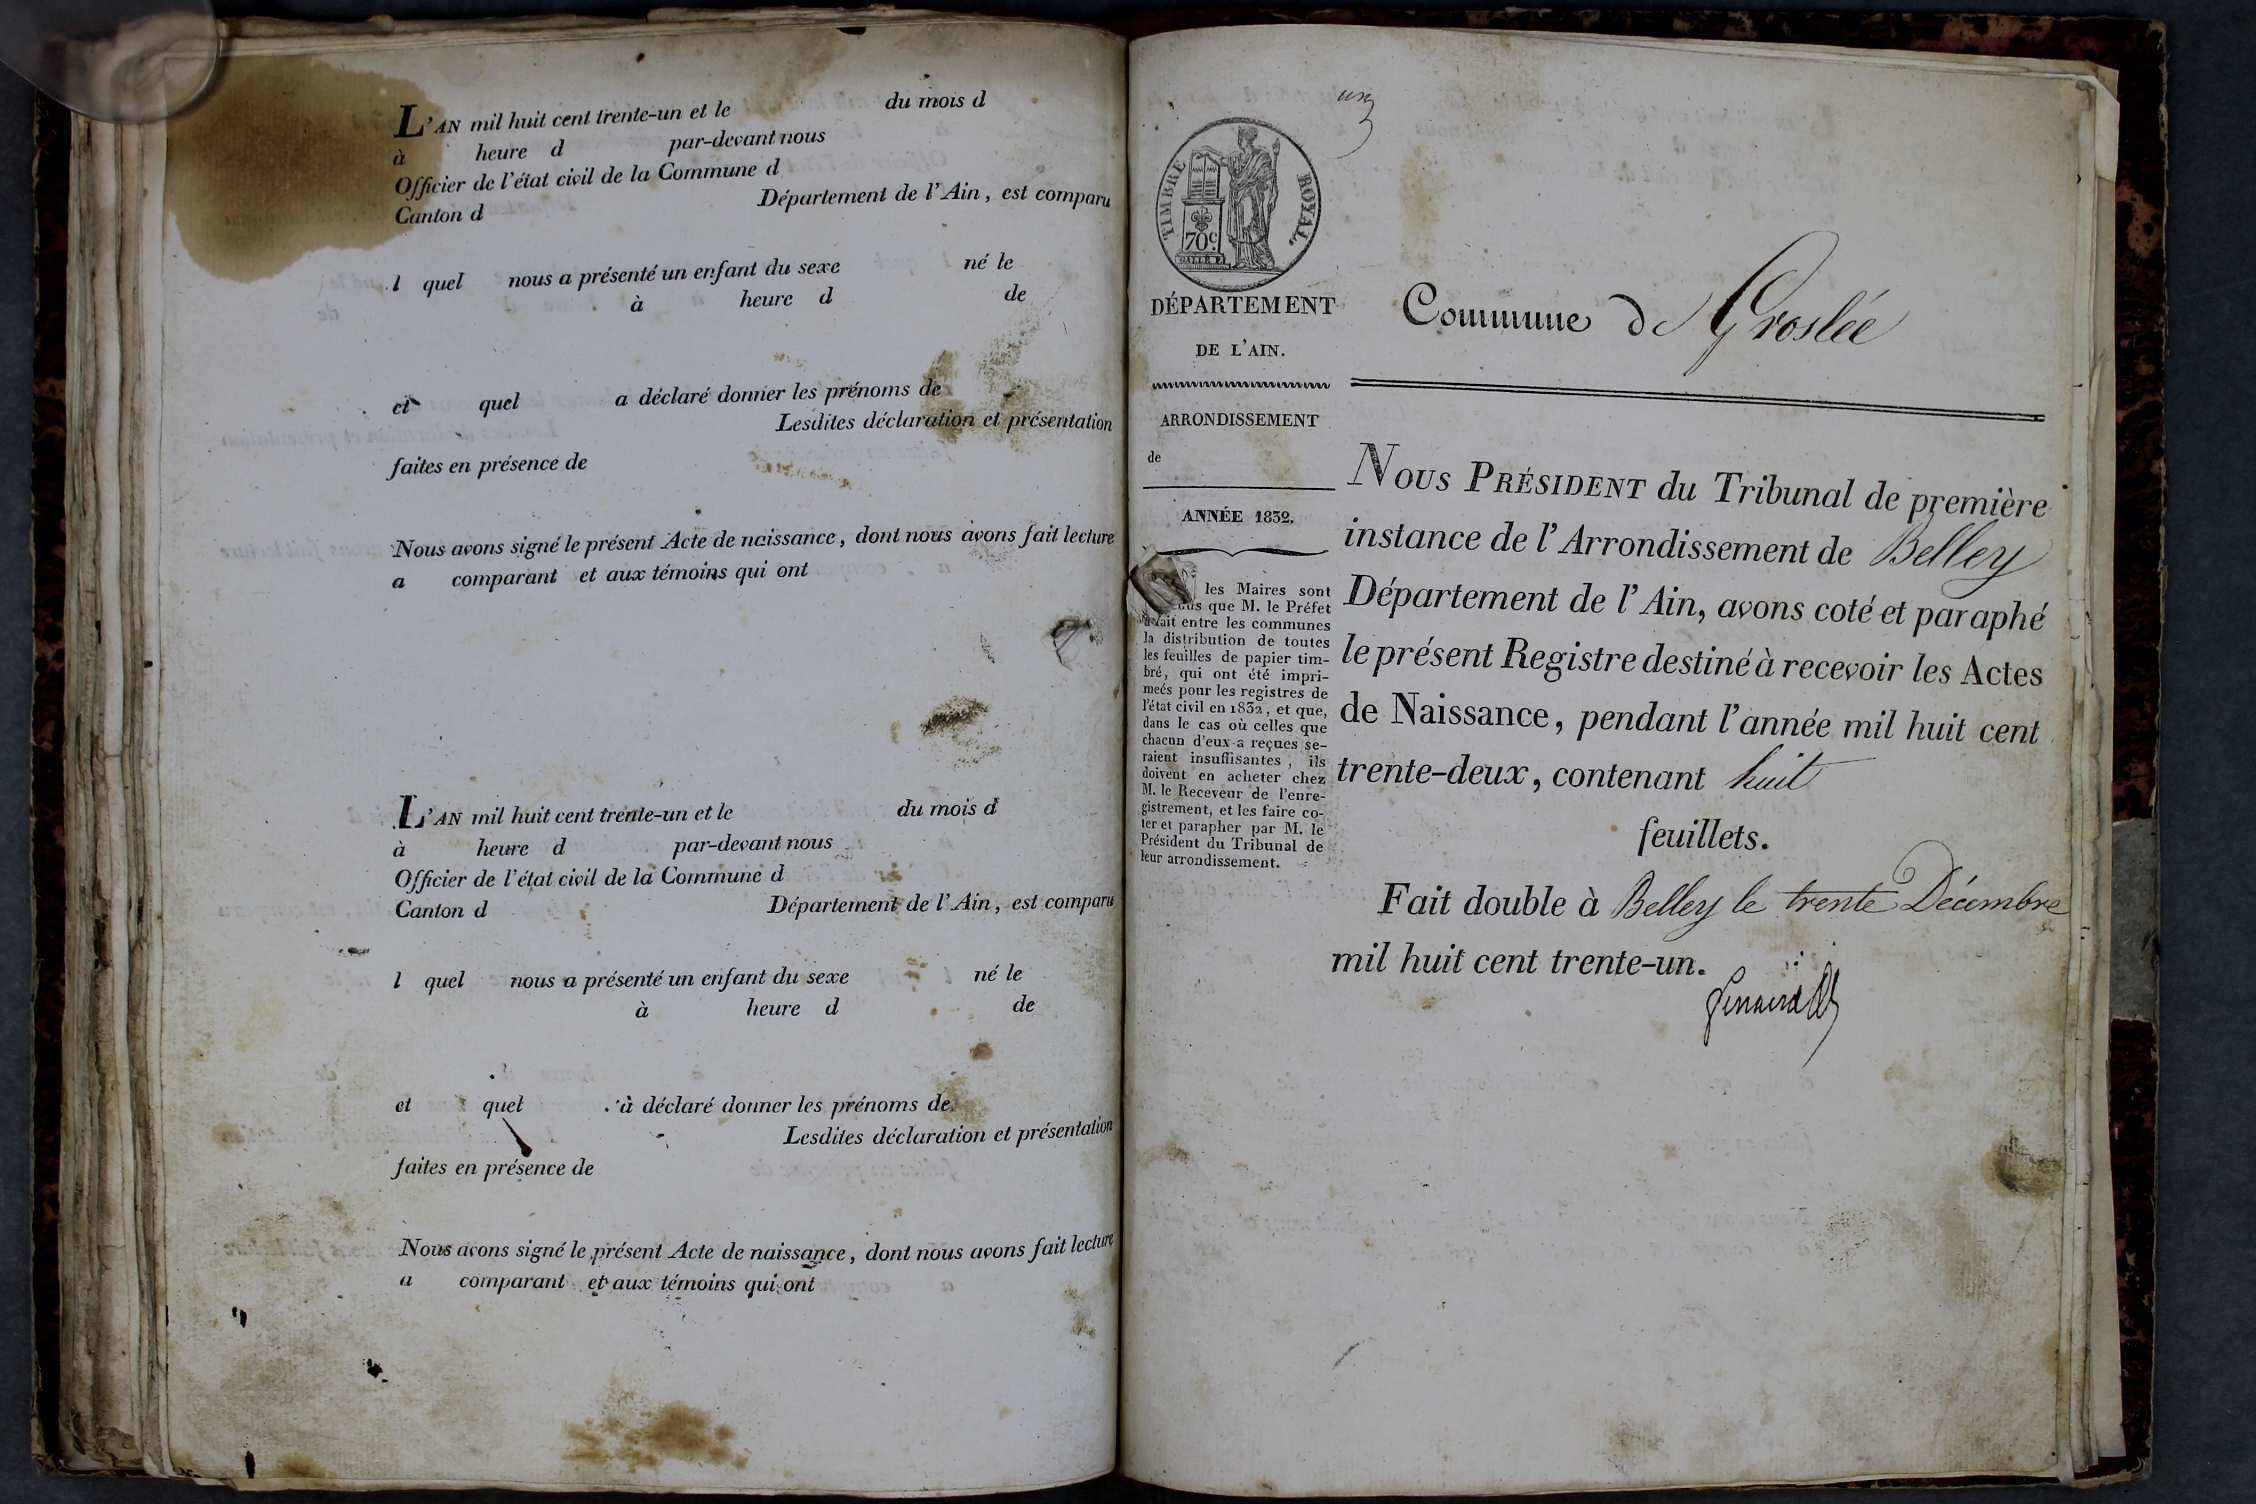 L'AN mil huit cent trente-un et le du mois d
à heure d par-devant nous
Officier de l'état civil de la Commune d
Canton d Département de l'Ain, est comparu
l quel nous a présenté un enfant du sexe né le
à heure d de
et quel a déclaré donner les prénoms de
Lesdites déclaration et présentation
faites en présence de
Nous avons signé le présent Acte de naissance, dont nous avons fait lecture
a comparant et aux témoins qui ont
L'AN mil huit cent trente-un et le du mois d
à heure d par-devant nous
Officier de l'état civil de la Commune d
Canton d Département de l'Ain, est comparu
l quel nous a présenté un enfant du sexe né le
à heure d de
et quel à déclaré donner les prénoms de
Lesdites déclaration et présentation
faites en présence de
Nous avons signé le présent Acte de naissance, dont nous avons fait lecture
a comparant et aux témoins qui ont
un
TIMBRE ROYAL.
70c.
DÉPARTEMENT
DE L'AIN.
ARRONDISSEMENT
de
ANNÉE 1832.
les Maires sont
que M. le Préfet
a fait entre les communes
la distribution de toutes
les feuilles de papier tim-
bré, qui ont été impri-
meés pour les registres de
l'état civil en 1832, et que,
dans le cas où celles que
chacun d'eux a reçues se-
raient insuffisantes, ils
doivent en acheter chez
M. le Receveur de l'enre-
gistrement, et les faire co-
ter et parapher par M. le
Président du Tribunal de
leur arrondissement.
Commune de Groslée
NOUS PRÉSIDENT du Tribunal de première
instance de l'Arrondissement de Belley
Département de l'Ain, avons coté et paraphé
le présent Registre destiné à recevoir les Actes
de Naissance, pendant l'année mil huit cent
trente-deux, contenant huit
feuillets.
Fait double à Belley le trente Décembre
mil huit cent trente-un.